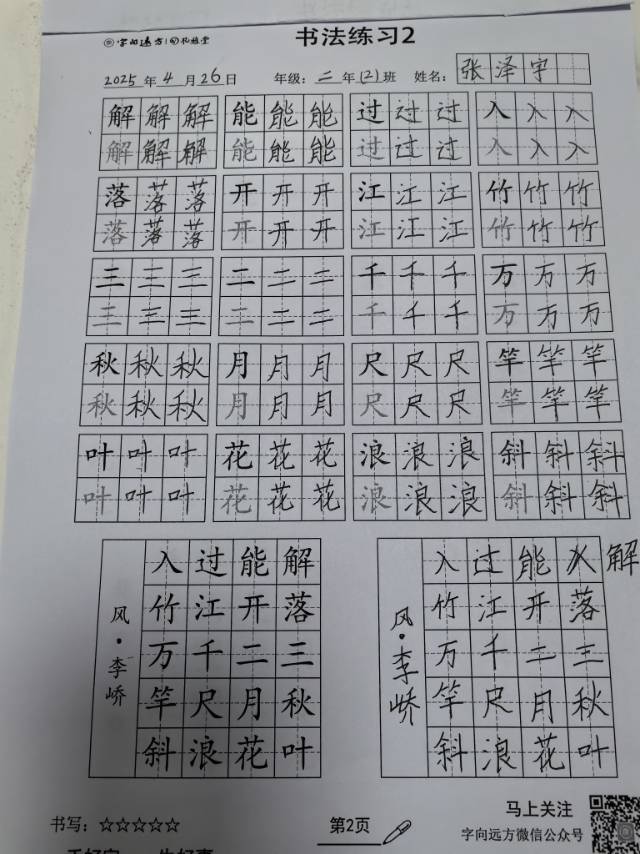 字向远方 | 孔雀堂 书法练习2
2025年4月26日 年级：二年(2)班 姓名：张泽宇
解解解 能能能 过过过 入入入
解解解 能能能 过过过 入入入
落落落 开开开 江江江 竹竹竹
落落落 开开开 江江江 竹竹竹
三三三 二二二 千千千 万万万
三三三 二二二 千千千 万万万
秋秋秋 月月月 尺尺尺 竿竿竿
秋秋秋 月月月 尺尺尺 竿竿竿
叶叶叶 花花花 浪浪浪 斜斜斜
叶叶叶 花花花 浪浪浪 斜斜斜
解落三秋叶
能开二月花
过江千尺浪
入竹万竿斜
风·李峤
解落三秋叶
能开二月花
过江千尺浪
入竹万竿斜
风·李峤
书写：☆☆☆☆☆
第2页
马上关注
字向远方微信公众号